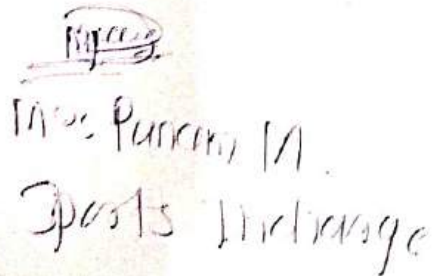 Mrs Punam M.
Sports Incharge